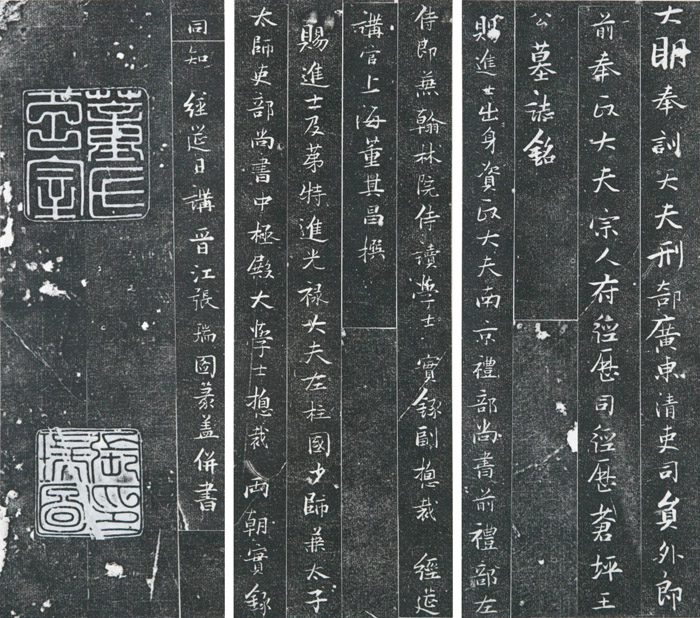 大明奉訓大夫刑部廣東清吏司員外郎
前奉政大夫宗人府經歷司經歷蒼坪王
公墓誌銘
賜進士出身資政大夫南京禮部尚書前禮部左
侍郎兼翰林院侍讀學士 實錄副揔裁 經筵
講官上海董其昌撰
賜進士及第特進光祿大夫左柱國少師兼太子
太師吏部尚書中極殿大學士揔裁 兩朝實錄
同知 經筵日講晉江張瑞圖篆盖併書
董氏玄宰